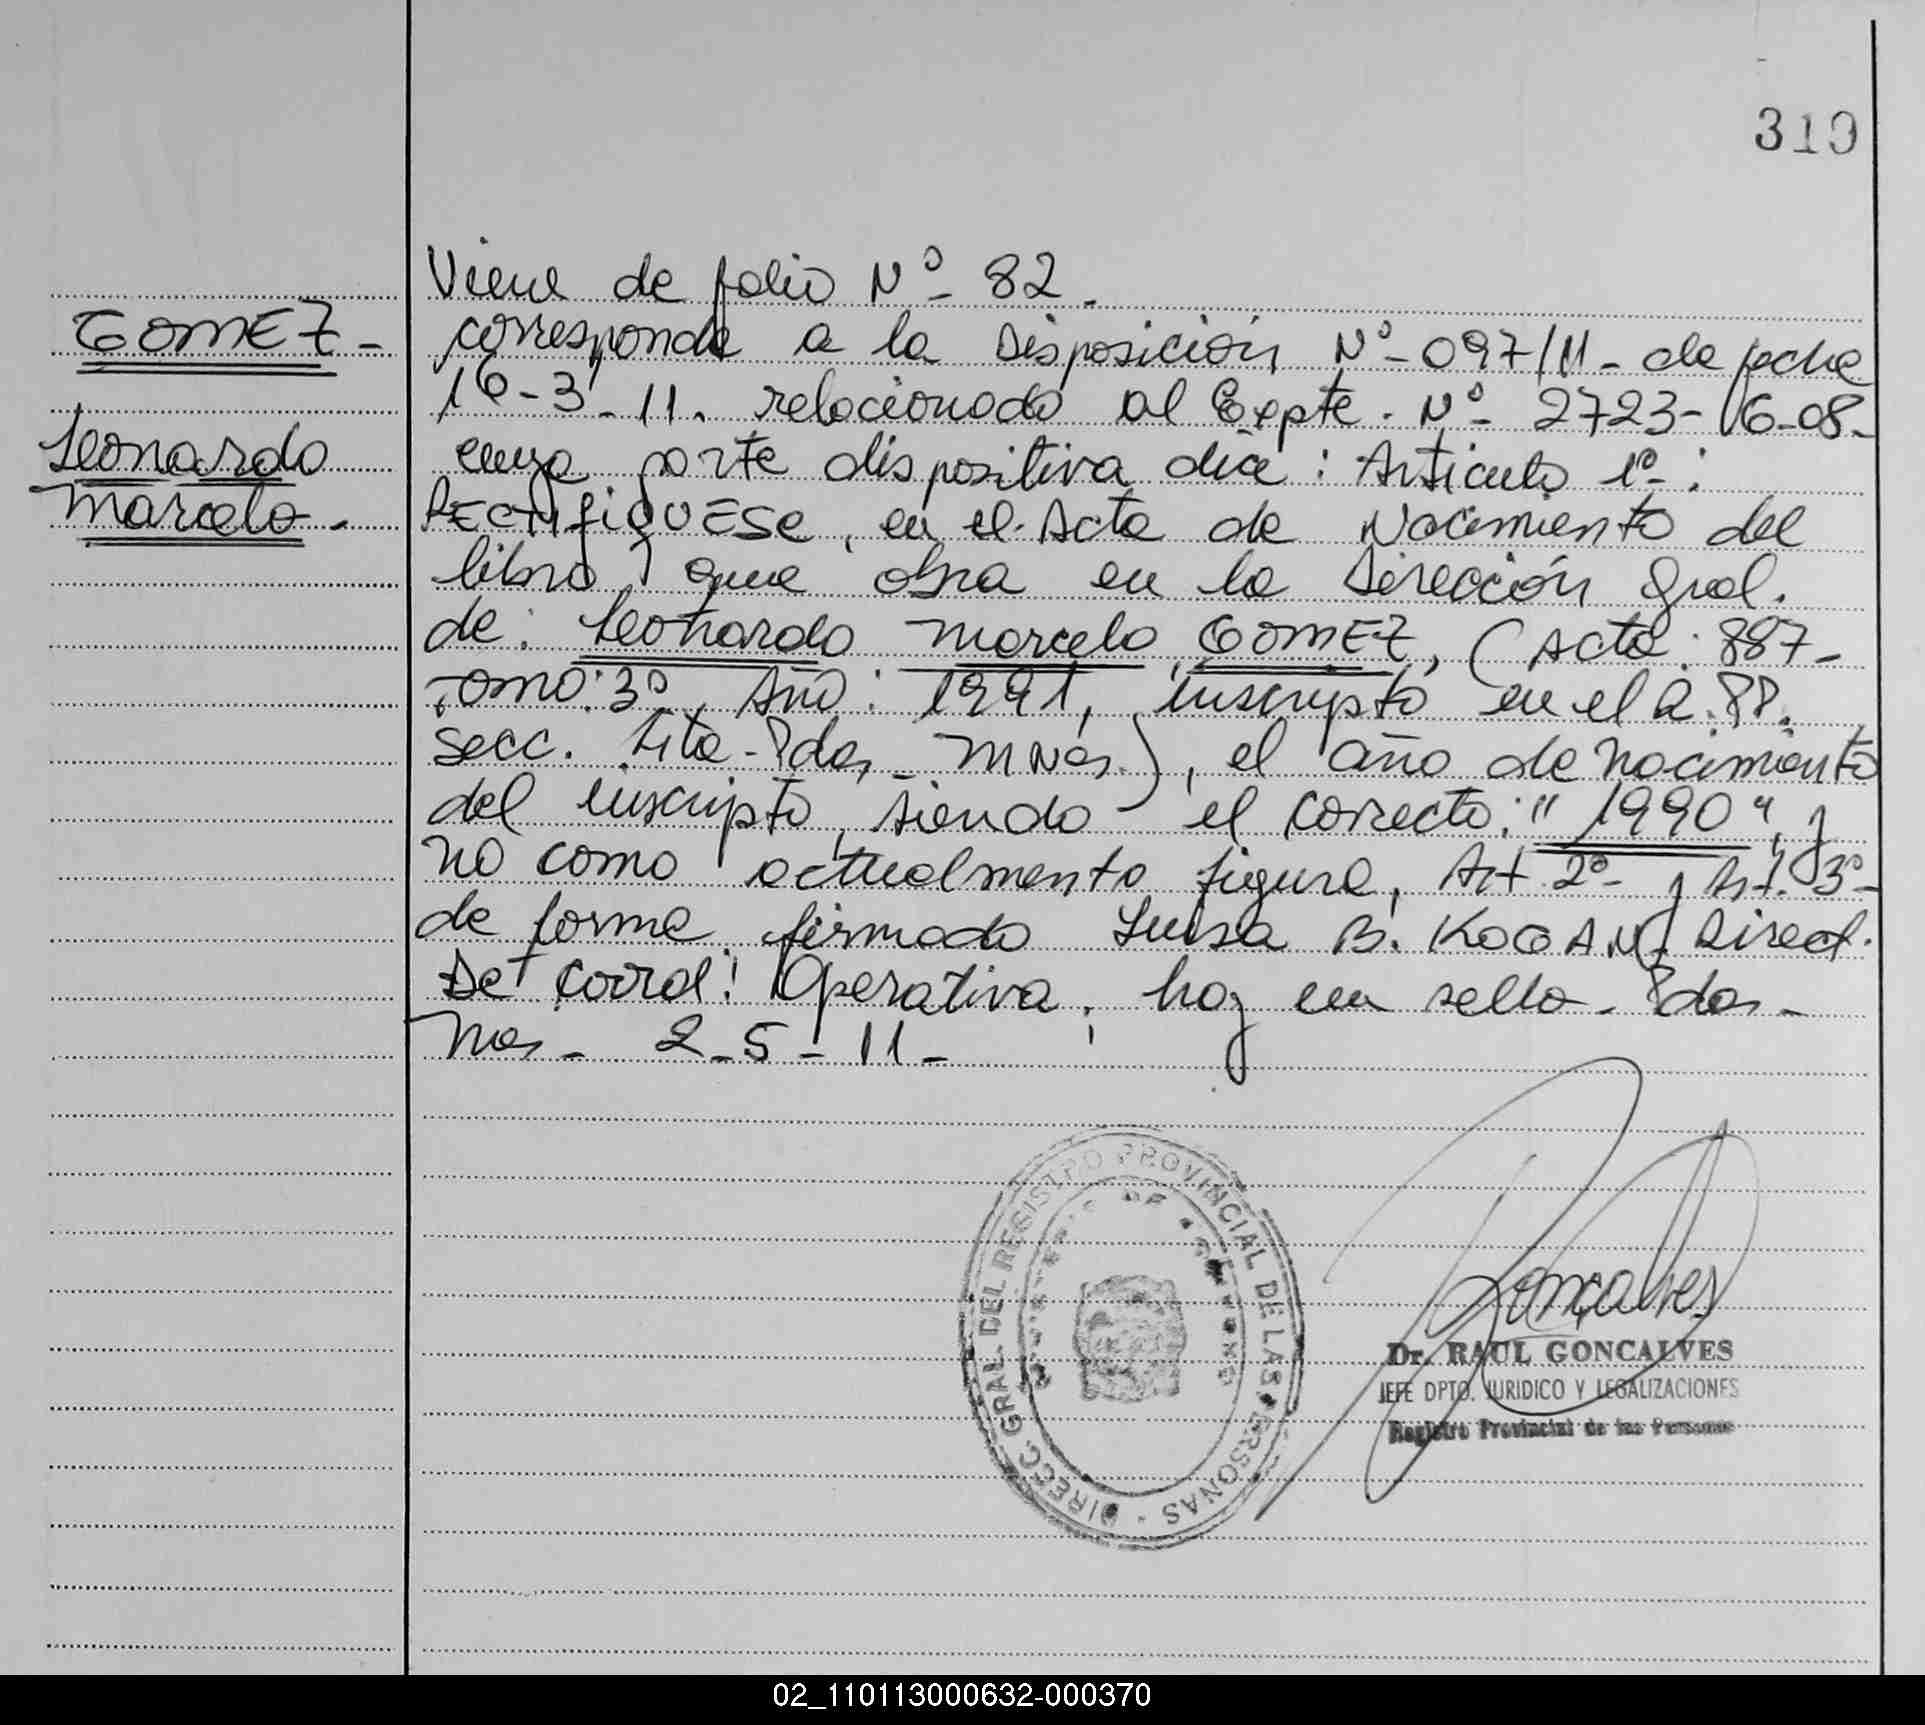 310
Viene de folio Nº- 82.
GOMEZ-
corresponde a la Disposición Nº-097/11- de fecha
16-3-11. relacionado al Expte. Nº- 2723- G-08-
Leonardo
cuya parte dispositiva dice: Articulo 1º-:
Marcelo-
RECTIFIQUESE, en el Acta de Nacimiento del
libro que obra en la Dirección Gral.
de: Leonardo Marcelo GOMEZ, (Acta: 887-
Tomo: 3º, Año: 1991, inscripto en el R.PP.
Secc. Pdas- Mnes), el año de nacimiento
del inscripto, siendo el correcto: "1990", y
no como actualmente figura, Art 2º- y Art. 3º-
de forma firmado Luisa B. KOGAN, Direct.
De Coord. Operativa, hay un sello- Pdas-
Mnes- 2-5-11-
DIRECC. GRAL. DEL REGISTRO PROVINCIAL DE LAS PERSONAS
Goncalves
Dr. RAUL GONCALVES
JEFE DPTO. JURIDICO Y LEGALIZACIONES
Registro Provincial de las Personas
02_110113000632-000370